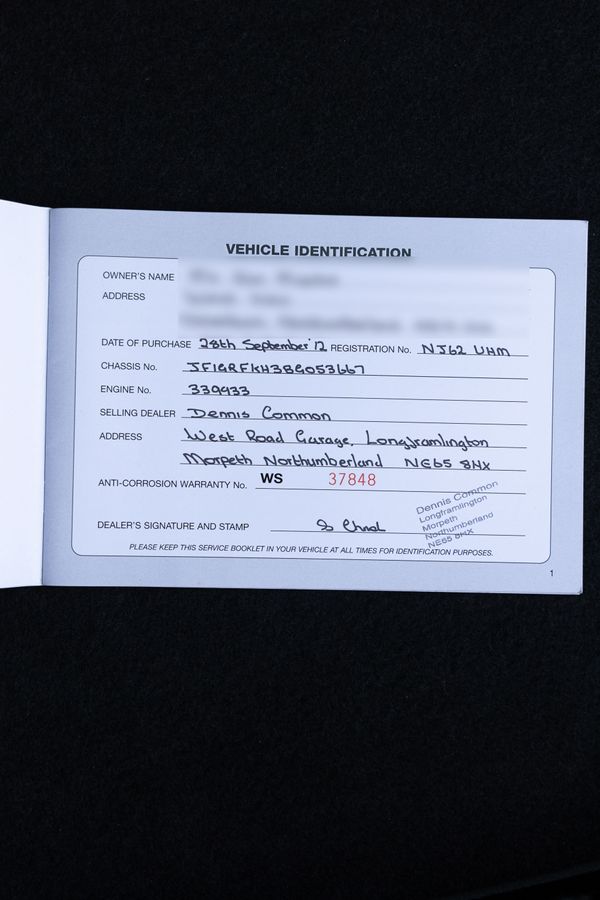 VEHICLE IDENTIFICATION
OWNER'S NAME
ADDRESS
DATE OF PURCHASE 28th September '12 REGISTRATION No. NJ62 UHM
CHASSIS No. JF1GRFKH38G053667
ENGINE No. 339933
SELLING DEALER Dennis Common
ADDRESS West Road Garage, Longframlington
Morpeth Northumberland NE65 8HX
ANTI-CORROSION WARRANTY No. WS 37848
DEALER'S SIGNATURE AND STAMP
Dennis Common
Longframlington
Morpeth
Northumberland
NE65 8HX
PLEASE KEEP THIS SERVICE BOOKLET IN YOUR VEHICLE AT ALL TIMES FOR IDENTIFICATION PURPOSES.
1